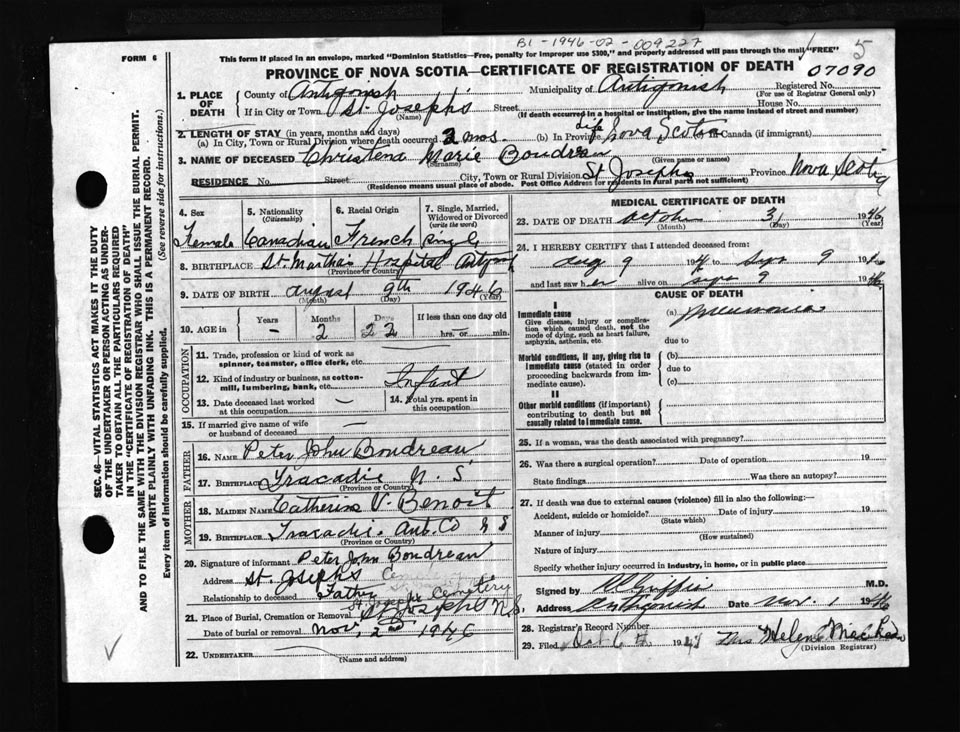 B1-1946-02-009227
FORM 6
This form if placed in an envelope, marked "Dominion Statistics—Free, penalty for improper use $300," and properly addressed will pass through the mail "FREE"
5
PROVINCE OF NOVA SCOTIA—CERTIFICATE OF REGISTRATION OF DEATH 07090
1. PLACE OF DEATH
County of Antigonish Municipality of Antigonish Registered No.
(For use of Registrar General only)
If in City or Town St. Joseph's Street House No.
(Name) (If death occurred in a hospital or institution, give the name instead of street and number)
2. LENGTH OF STAY (in years, months and days)
(a) In City, Town or Rural Division where death occurred 2 mos. (b) In Province life Nova Scotia Canada (if immigrant)
3. NAME OF DECEASED Christena Marie Boudreau
(Surname) (Given name or names)
RESIDENCE No. Street City, Town or Rural Division St Josephs Province Nova Scotia
(Residence means usual place of abode. Post Office Address for residents in rural parts not sufficient)
4. Sex 5. Nationality (Citizenship) 6. Racial Origin 7. Single, Married, Widowed or Divorced (write the word)
Female Canadian French Single
8. BIRTHPLACE St. Martha's Hospital Antigonish
(Province or Country)
9. DATE OF BIRTH August 9th 1946
(Month) (Day) (Year)
10. AGE in Years Months Days If less than one day old
— 2 22 hrs. or min.
OCCUPATION
11. Trade, profession or kind of work as spinner, teamster, office clerk, etc.
12. Kind of industry or business, as cotton-mill, lumbering, bank, etc. Infant
13. Date deceased last worked at this occupation — 14. Total yrs. spent in this occupation
15. If married give name of wife or husband of deceased —
FATHER
16. NAME Peter John Boudreau
17. BIRTHPLACE Tracadie N.S.
(Province or Country)
MOTHER
18. MAIDEN NAME Catherine V. Benoit
19. BIRTHPLACE Tracadie. Ant. Co N S
(Province or Country)
20. Signature of informant Peter John Boudreau
Address St. Josephs
Relationship to deceased Father
21. Place of Burial, Cremation or Removal St. Joseph's N.S. Cemetery
Date of burial or removal Nov. 2nd 1946
22. UNDERTAKER
(Name and address)
MEDICAL CERTIFICATE OF DEATH
23. DATE OF DEATH October 31 1946
(Month) (Day) (Year)
24. I HEREBY CERTIFY that I attended deceased from:
Aug 9 1946 to Sept 9 1946
and last saw her alive on Sept 9 1946
CAUSE OF DEATH
I
Immediate cause (a) Pneumonia
Give disease, injury or complication which caused death, not the mode of dying, such as heart failure, asphyxia, asthenia, etc.
due to
Morbid conditions, if any, giving rise to immediate cause (stated in order proceeding backwards from immediate cause).
(b)
due to
(c)
II
Other morbid conditions (if important) contributing to death but not causally related to immediate cause.
25. If a woman, was the death associated with pregnancy?
26. Was there a surgical operation? Date of operation 19
State findings Was there an autopsy?
27. If death was due to external causes (violence) fill in also the following:—
Accident, suicide or homicide? Date of injury 19
(State which)
Manner of injury
(How sustained)
Nature of injury
Specify whether injury occurred in industry, in home, or in public place
Signed by W Griffin M.D.
Address Antigonish Date Nov. 1 1946
28. Registrar's Record Number
29. Filed Oct 6th 19 Mrs Helen
(Division Registrar)
SEC. 46—VITAL STATISTICS ACT MAKES IT THE DUTY
OF THE UNDERTAKER OR PERSON ACTING AS UNDER-
TAKER TO OBTAIN ALL THE PARTICULARS REQUIRED
IN THE "CERTIFICATE OF REGISTRATION OF DEATH"
AND TO FILE THE SAME WITH THE DIVISION REGISTRAR WHO SHALL ISSUE THE BURIAL PERMIT.
WRITE PLAINLY WITH UNFADING INK. THIS IS A PERMANENT RECORD.
Every item of information should be carefully supplied. (See reverse side for instructions.)